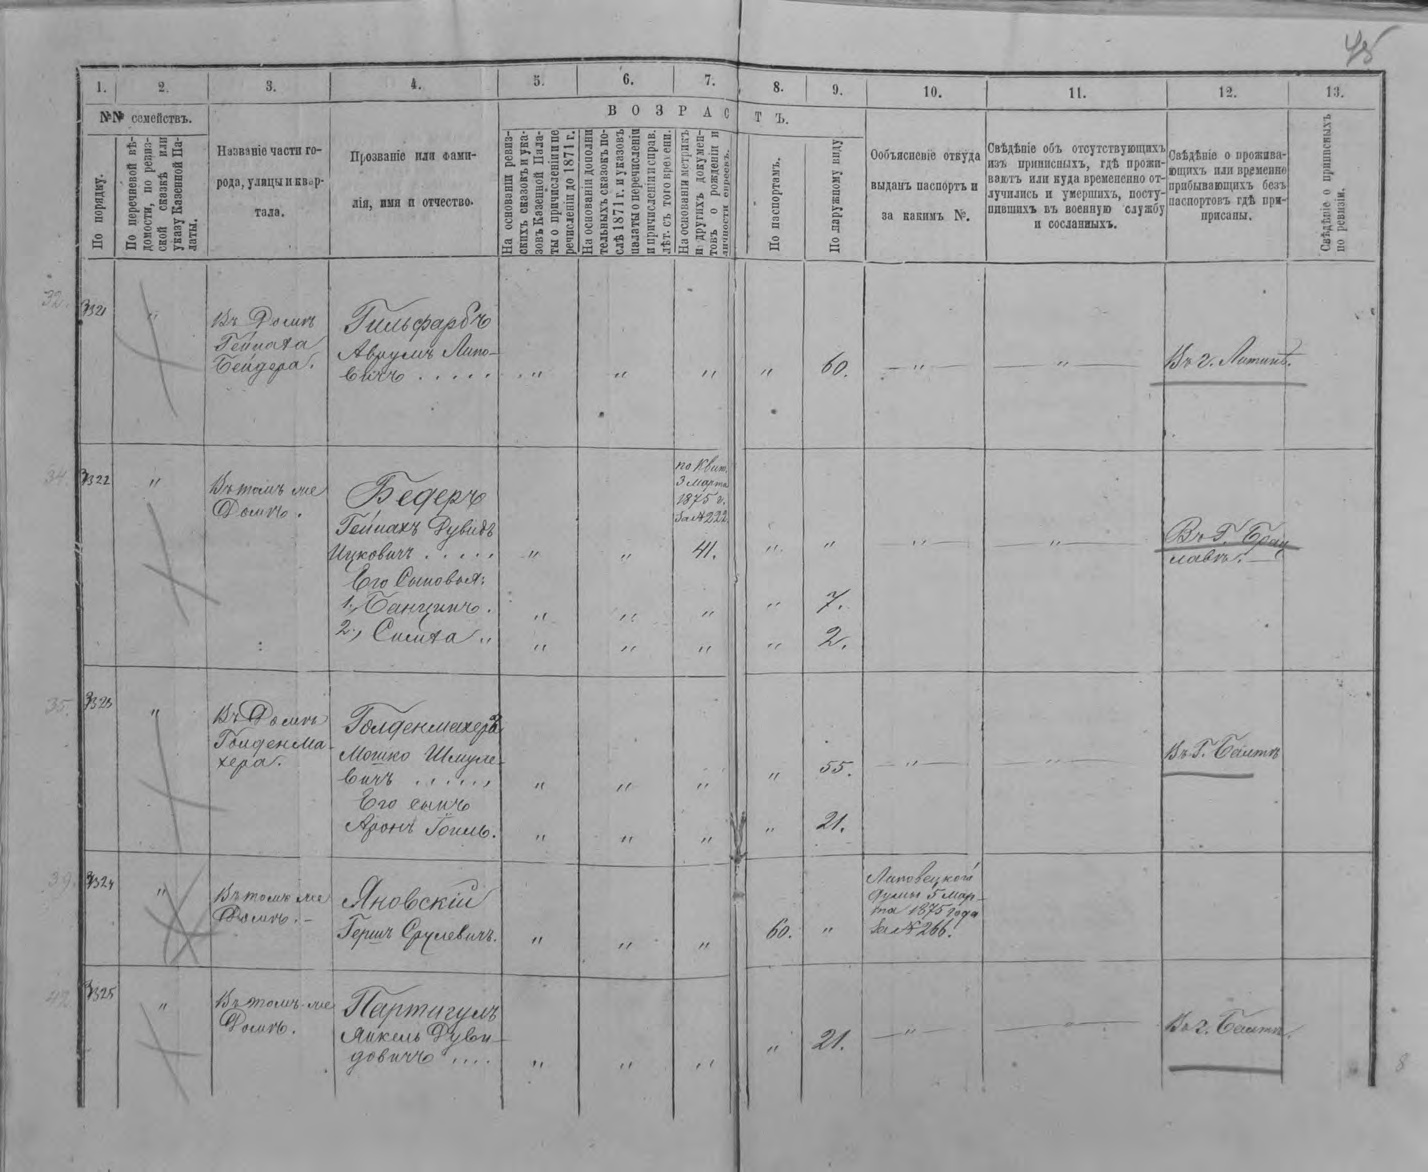 1.
2.
3.
4.
5.
6.
7.
8.
9.
10.
11.
12.
13.
№№ семействъ.
В О З Р А С Т Ъ.
По порядку.
По перечневой вѣ-
домости, по ревиз-
ской сказкѣ или
указу Казенной Па-
латы.
Названіе части го-
рода, улицы и квар-
тала.
Прозваніе или фами-
лія, имя и отчество.
На основаніи ревиз-
скихъ сказокъ и ука-
зовъ Казенной Пала-
ты о причисленіи и пе
речисленіи до 1871 г.
На основаніи дополни
тельныхъ сказокъ по-
слѣ 1871 г. и указовъ
палаты о перечисленіи
и причисленіи и справ.
лѣт. съ того времени.
На основаніи метрикъ
и другихъ докумен-
товъ о рожденіи и
личности евреевъ.
По паспортамъ.
По наружному виду
Объясненіе откуда
выданъ паспортъ и
за какимъ №.
Свѣдѣніе объ отсутствующихъ
изъ приписныхъ, гдѣ прожи-
ваютъ или куда временно от-
лучились и умершихъ, посту-
пившихъ въ военную службу
и сосланныхъ.
Свѣдѣніе о прожива-
ющихъ или временно
прибывающихъ безъ
паспортовъ гдѣ при-
приписаны.
Свѣдѣніе о приписныхъ
по ревизіи.
32.
321
"
Въ Домѣ
Гейнаха
Бейдера.
Гильфарбъ
Аврумъ Липо-
вичъ . . . . . . "
"
"
"
60.
—"—
—"—
Въ г. Литинѣ.
34.
322
"
Въ томъ же
Домѣ.
Бедеръ
Гейнахъ Дувидъ
Ицковичъ . . . . . "
"
по Квит.
3 Марта
1875 г.
за № 222
41.
"
"
—"—
—"—
Въ Г. Брац
лавѣ.
Его Сыновья:
1., Банцинъ . "
"
"
"
7.
2., Симха " "
"
"
"
2.
35.
323
"
Въ Домѣ
Голденма-
хера.
Голденмахеръ
Мошко Шмуле-
вичъ . . . . . , "
"
"
"
55.
—"—
—"—
Въ Г. Балтѣ
Его сынъ
Аронъ Гоиль. "
"
"
"
21.
39.
324
"
Въ томъ же
Домѣ. —
Яновскій
Гершъ Срулевичъ. "
"
"
60.
"
Липовецкой
Думы 5 Мар-
та 1875 года
за № 266.
42
325
"
Въ томъ-же
Домѣ.
Партигулъ
Янкель Дуви-
довичъ . . . . "
"
"
"
21.
—"—
—"—
Въ г. Балтѣ.
8